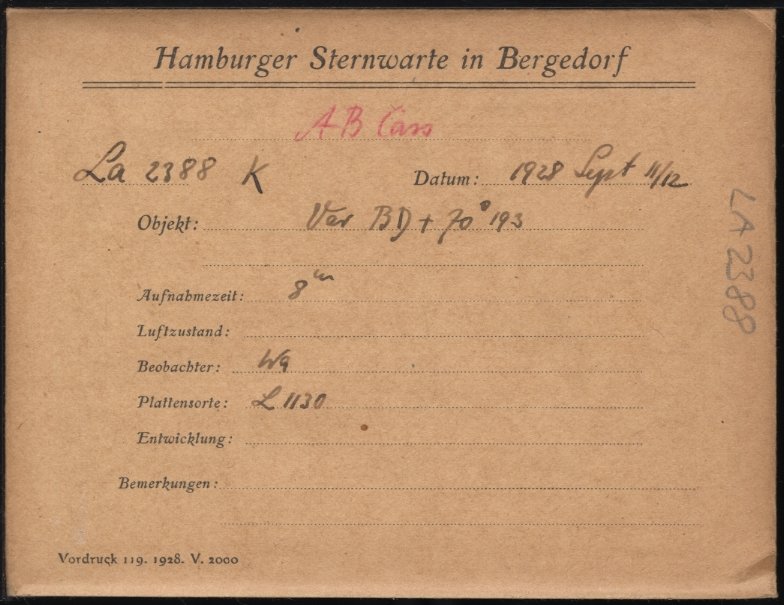 Hamburger Sternwarte in Bergedorf
AB Cass
La 2388 K Datum: 1928 Sept 11/12
Objekt: Var BD + 70° 193
Aufnahmezeit: 8m
Luftzustand:
Beobachter: Wa
Plattensorte: L 1130
Entwicklung:
Bemerkungen:
Vordruck 119. 1928. V. 2000
LA 2388